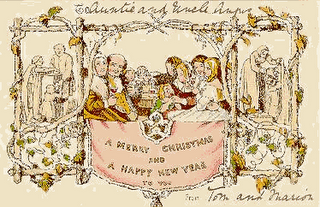 To Auntie and Uncle Angus
A MERRY CHRISTMAS
AND
A HAPPY NEW YEAR
TO YOU
from Tom and Marion